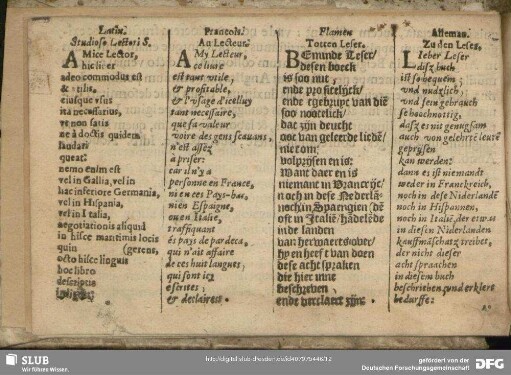 Latin.
Studioso Lectori S.
AMice Lector,
hic liber
adeo commodus est
& vtilis,
eiusque vsus
ita necessarius,
vt non satis
ne à doctis quidem
laudari
queat:
nemo enim est
vel in Gallia, vel in
hac inferiore Germania,
vel in Hispania,
vel in Italia,
negotiationis aliquid
in hisce maritimis locis
quin (gerens,
octo hisce linguis
hoc libro
descriptis
Francois.
Au Lecteur.
AMy Lecteur,
ce liure
est tant vtile,
& profitable,
& l'vsage d'icelluy
tant necessaire,
que sa valeur
voire des gens scauans,
n'est assez
a priser:
car il n'y a
personne en France,
ni en ces Pays-bas,
ni en Espagne,
ou en Italie,
traffiquant
és pays de pardeca,
qui n'ait affaire
de ces huit langues,
qui sont icy
escrites,
& declairees.
Flamen
Totten Leser.
BEminde Leser/
desen boeck
is soo nut,
ende profitelijck/
soo nootelick/
dat zijn deucht
niet om
volprijsen en is:
Want daer en is
niemant in Vranckrijc/
oft in Italië/
inde landen
van herwaertsover/
hy en heeft van doen
dese acht spraken
die hier inne
beschreven,
ende verclaert zijn.
Alleman.
Zu den Leser.
LIeber Leser
disz buch
ist so bequem
vnd nudzlich,
vnd sein gebrauch
so hoochnottig,
dasz es nit genugsam
auch von gelehrte leuten
geprysen
kan werden:
dann es ist niemandt
weder in Franckreich,
noch in dese Nederlanden
noch in Hispannien,
noch in Italie, der etwas
in diesen Niderlanden
kauffmäschatz treibet,
der nicht dieser
acht spraachen
in diesem buch
beschrieben, vnd erklert
bedurffe:
SLUB
Wir führen Wissen.
gefördert von der
Deutschen Forschungsgemeinschaft
DFG